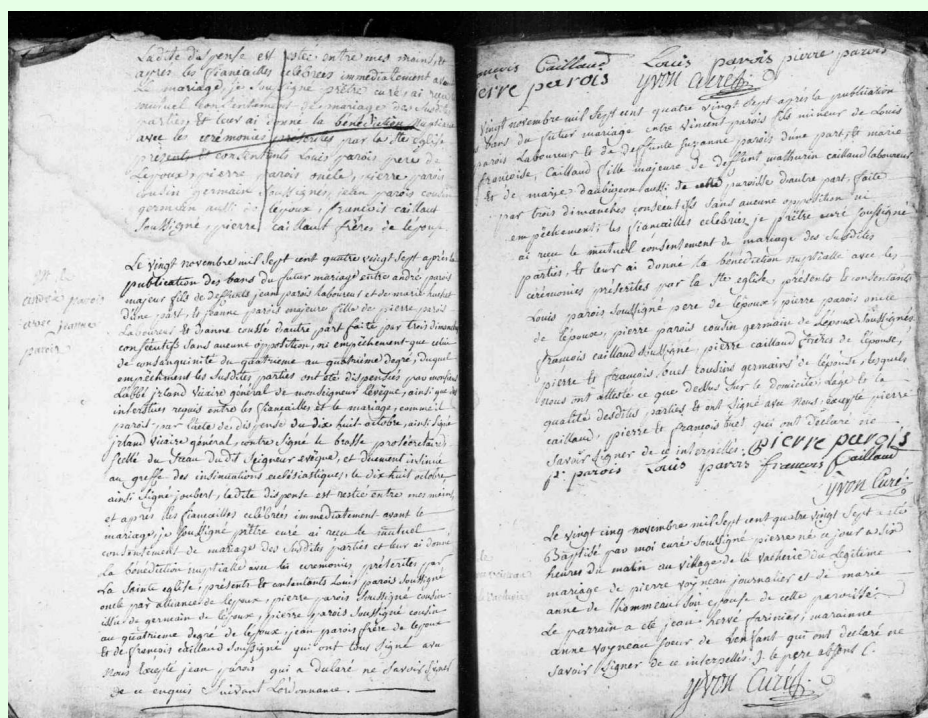 Ladite dispense est restée entre mes mains, et
après les fiançailles célébrées immédiatement avant
Le mariage, je soussigné prêtre curé ai reçu
mutuel consentement de mariage des susdites
parties, et leur ai donné la bénédiction nuptiale
avec les cérémonies préscrites par la ste eglise
présents et consentents Louis parois, pere de
Lépoux, pierre parois oncle, pierre parois
cousin germain soussignés, jean parois cousin
germain aussi de lépoux, francois caillaut
soussigné, pierre caillaut frères de lepouse
Le vingt novembre mil sept cent quatre vingt sept après la
publication des bans du futur mariage entre andré parois
majeur fils de deffunts jean parois laboureur et de marie
d'une part, et jeanne parois majeure fille de pierre parois
Laboureur et d'anne cousse d'autre part faite par trois dimanches
consécutifs sans aucune opposition, ni empêchement que celui
de consanguinité du quatrieme au quatrieme degré, duquel
empêchement les susdites parties ont été dispensés par monsieur
l'abbé jrland vicaire général de monseigneur L'évêque, ainsi que des
interstices requis entre les fiancailles et le mariage, comme il
paroit par l'acte de dispense du dix huit octobre, ainsi signé
jrland vicaire général, contre signé le brosse prosécrétaire
scellé du sceau dudit seigneur evêque, et duement insinué
au greffe des insinuations ecclésiastiques, le dix huit octobre
ainsi signé joubert, ladite dispense est restée entre mes mains
et après les fiancailles célébrées immediatement avant le
mariage, je soussigné prêtre curé ai reçu le mutuel
consentement de mariage des susdites parties et leur ai donné
la bénédiction nuptialle avec les ceremonies préscrites par
La sainte eglise, présents et consentants Louis parois soussigné
oncle par alliance de lépoux, pierre parois soussigné cousin
issu de germain de lépoux, pierre parois soussigné cousin
au quatrieme degré de lépoux jean parois frère de lepoux
et de francois caillaud soussigné qui ont tous signé avec
Nous excepté jean parois qui a déclaré ne savoir signer
de ce enquis suivant Lordonnance.
andré parois
avec jeanne
parois
françois Caillaud Louis parois pierre parois
pierre parois yvon Curé
vingt novembre mil sept cent quatre vingt sept après la publication
bans du futur mariage entre vincent parois fils mineur de Louis
parois Laboureur et de deffunte suzanne parois d'une part, et marie
françoise Caillaud fille majeure de deffunt mathurin caillaud laboureur
et de marie d'aubigeon aussi de cette paroisse d'autre part, faite
par trois dimanches consecutifs sans aucune opposition ni
empêchement; les fiancailles célébrées je prêtre curé soussigné
ai reçu le mutuel consentement de mariage des susdites
parties, et leur ai donné la bénédiction nuptialle avec les
cérémonies préscrites par la ste eglise, présents et consentants
Louis parois soussigné pere de lépoux, pierre parois oncle
de lépoux, pierre parois cousin germain de Lépoux soussignés
françois caillaud soussigné, pierre caillaud freres de lépouse,
pierre et françois cousins germains de lépouse, lesquels
nous ont attesté ce que dessus sur le domicile, Lage et la
qualité desdites parties et ont signé avec Nous, excepté pierre
caillaud, pierre et françois qui ont déclaré ne
savoir signer de ce interpellés. pierre parois
parois Louis parois françois Caillaud
yvon Curé
Le vingt cinq novembre mil sept cent quatre vingt sept a été
Baptisé par moi curé soussigné pierre né ce jour a six
heures du matin au village de la vacherie du Légitime
mariage de pierre voyneau journalier et de marie
anne de L'hommeau son epouse de cette paroisse
Le parrain a été jean hervé farinier, marainne
anne voyneau soeur de Lenfant qui ont déclaré ne
savoir signer de ce interpellés. le pere absent
yvon Curé